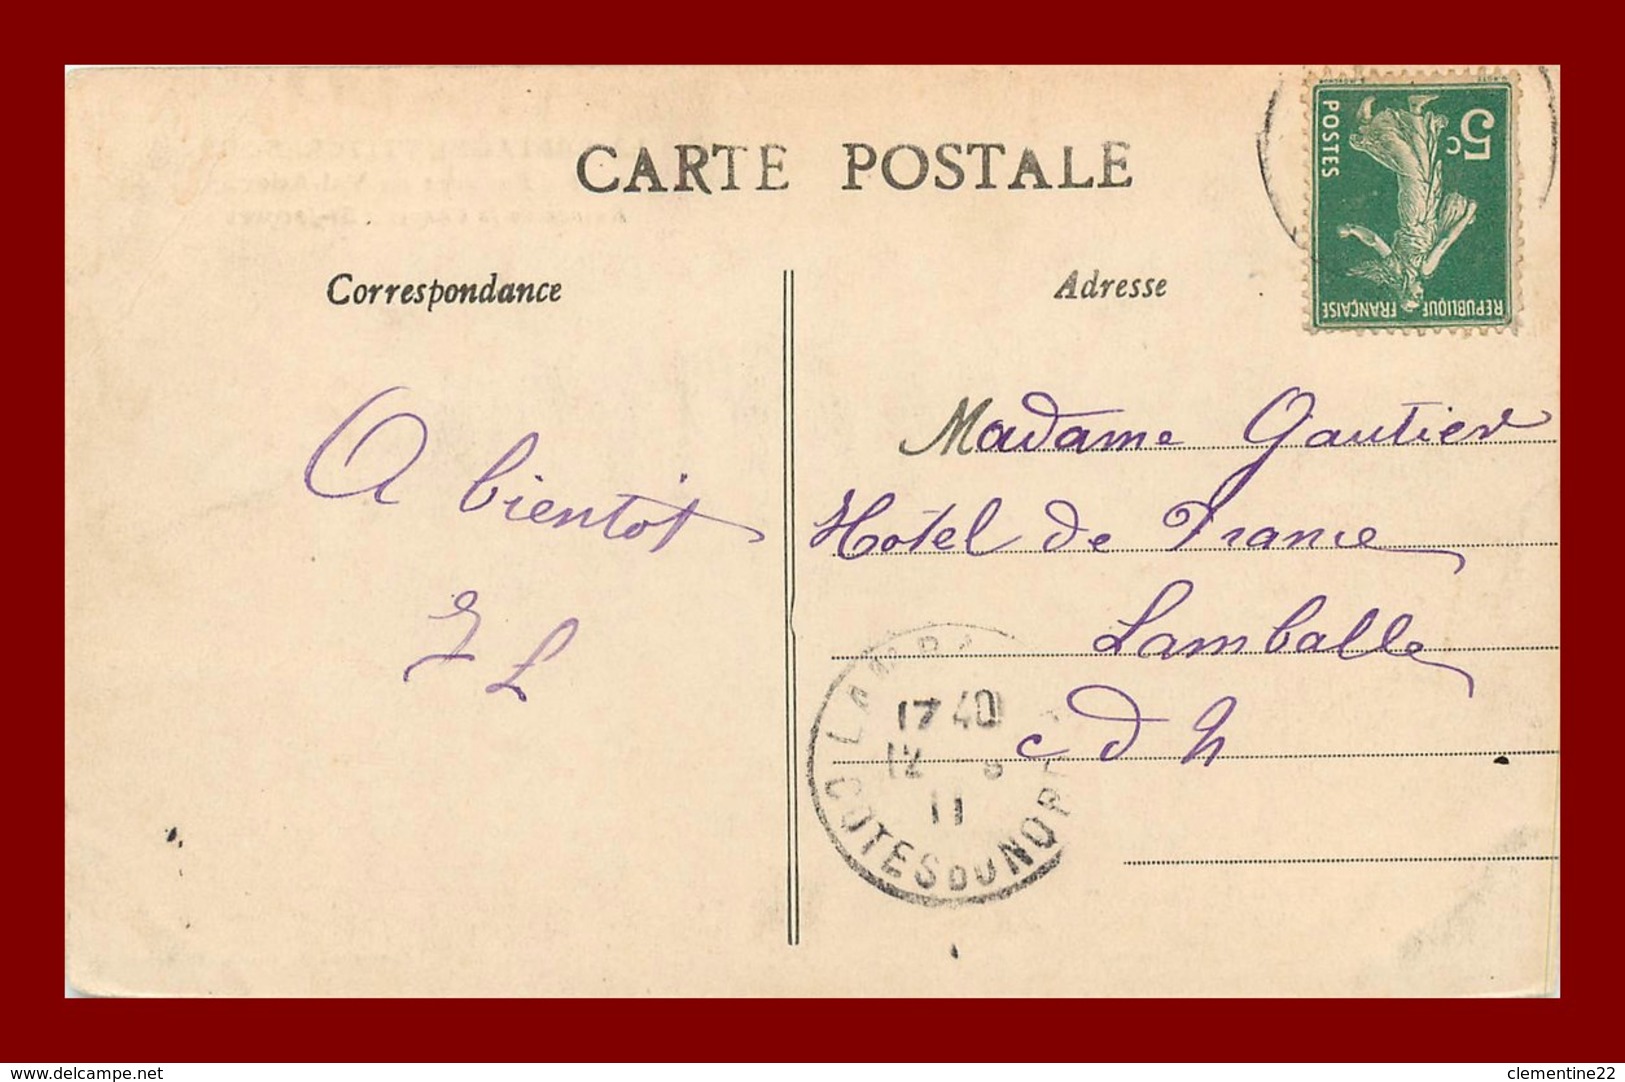 CARTE POSTALE
Correspondance
Adresse
5c
POSTES
REPUBLIQUE FRANÇAISE
A bientôt
L
Madame Gautier
Hôtel de France
Lamballe
c d N
LAMB
17 40
12 8
11
COTES DU NORD
www.delcampe.net
clementine22